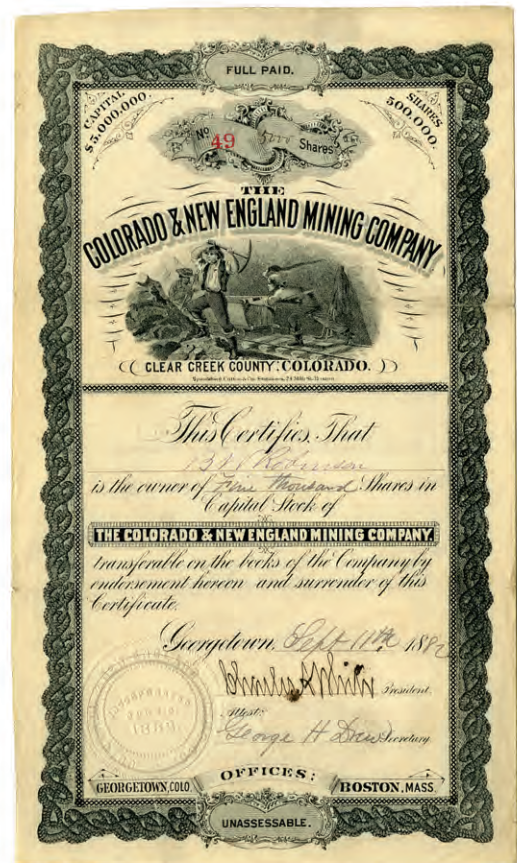 FULL PAID.
CAPITAL $5,000,000.
SHARES 500,000.
No 49 5000 Shares
THE
COLORADO & NEW ENGLAND MINING COMPANY
CLEAR CREEK COUNTY. COLORADO.
This Certifies, That
Robinson
is the owner of Five thousand Shares in
Capital Stock of
THE COLORADO & NEW ENGLAND MINING COMPANY
transferable on the books of the Company by
endorsement hereon and surrender of this
Certificate.
Georgetown, Sept 11th 1882
Charles A White President.
Attest:
George H Drew Secretary
OFFICES:
GEORGETOWN, COLO.
BOSTON, MASS.
UNASSESSABLE.